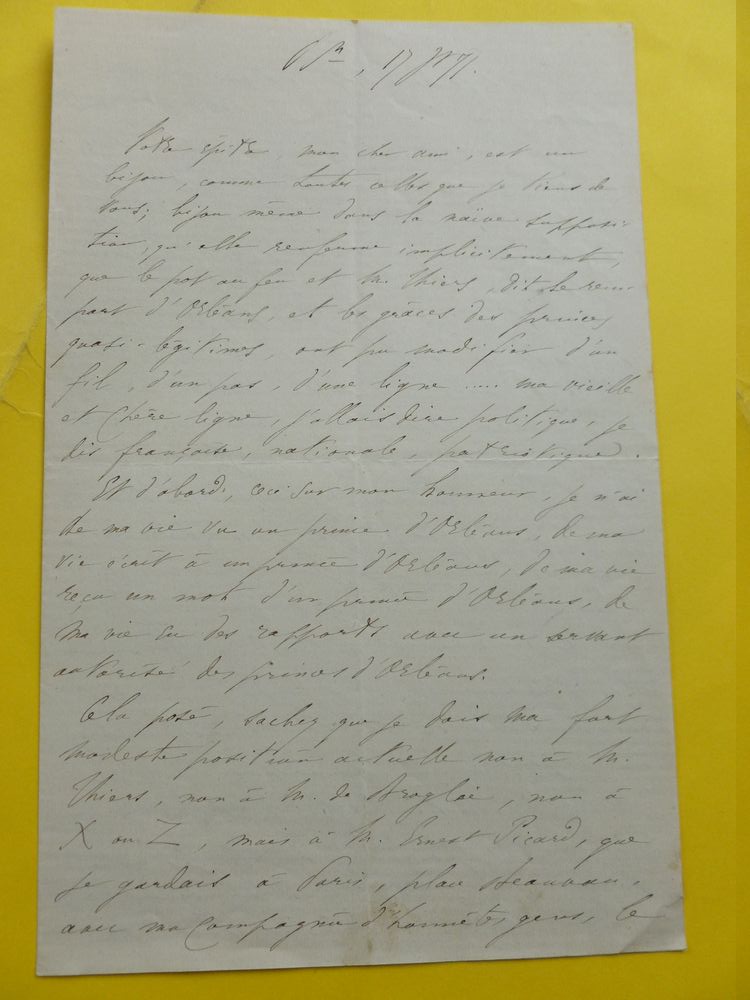 Votre épître, mon cher ami, est un
bijou, comme toutes celles que je tiens de
vous; bijou même dans la naïve supposi-
tion, qu'elle renferme implicitement,
que le pot au feu et M. Thiers, dit le rem-
part d'Orléans, et les grâces des princes
quasi-légitimes, ont pu modifier d'un
fil, d'un pas, d'une ligne ..... ma vieille
et chère ligne, j'allais dire politique, je
dis française, nationale, patriotique.
Et d'abord, ceci sur mon honneur, je n'ai
de ma vie vu un prince d'Orléans, de ma
vie écrit à un prince d'Orléans, de ma vie
reçu un mot d'un prince d'Orléans, de
ma vie eu des rapports avec un servant
autorisé des princes d'Orléans.
Cela posé, sachez que je dois ma fort
modeste position actuelle non à M.
Thiers, non à M. de Broglie, non à
X ou Z, mais à M. Ernest Picard, que
je gardais à Paris, place Beauvau,
avec ma compagnie d'honnêtes gens, le